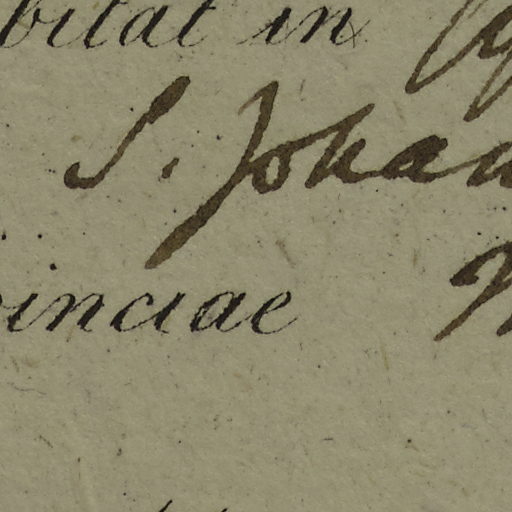 bitat in
S. Johan
inciae